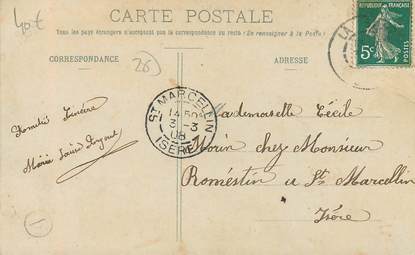 40€
CARTE POSTALE
Tous les pays étrangers n'acceptent pas la correspondance au recto (Se renseigner à la Poste)
CORRESPONDANCE
(26)
ADRESSE
RÉPUBLIQUE FRANÇAISE
5c
POSTES
ST MARCELLIN
3-3
08
ISÈRE
Mademoiselle Cécile
Morin chez Monsieur
Roméstin a St Marcellin
Isère
Amitiés Sincère
Marie Louise